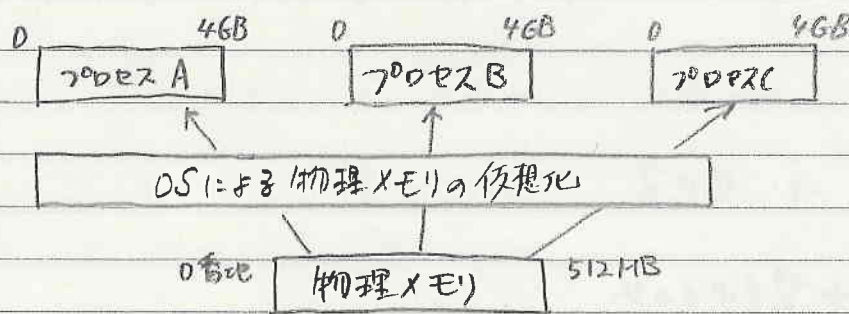 0 4GB 0 4GB 0 4GB
プロセスA プロセスB プロセスC
OSによる物理メモリの仮想化
0番地 物理メモリ 512MB